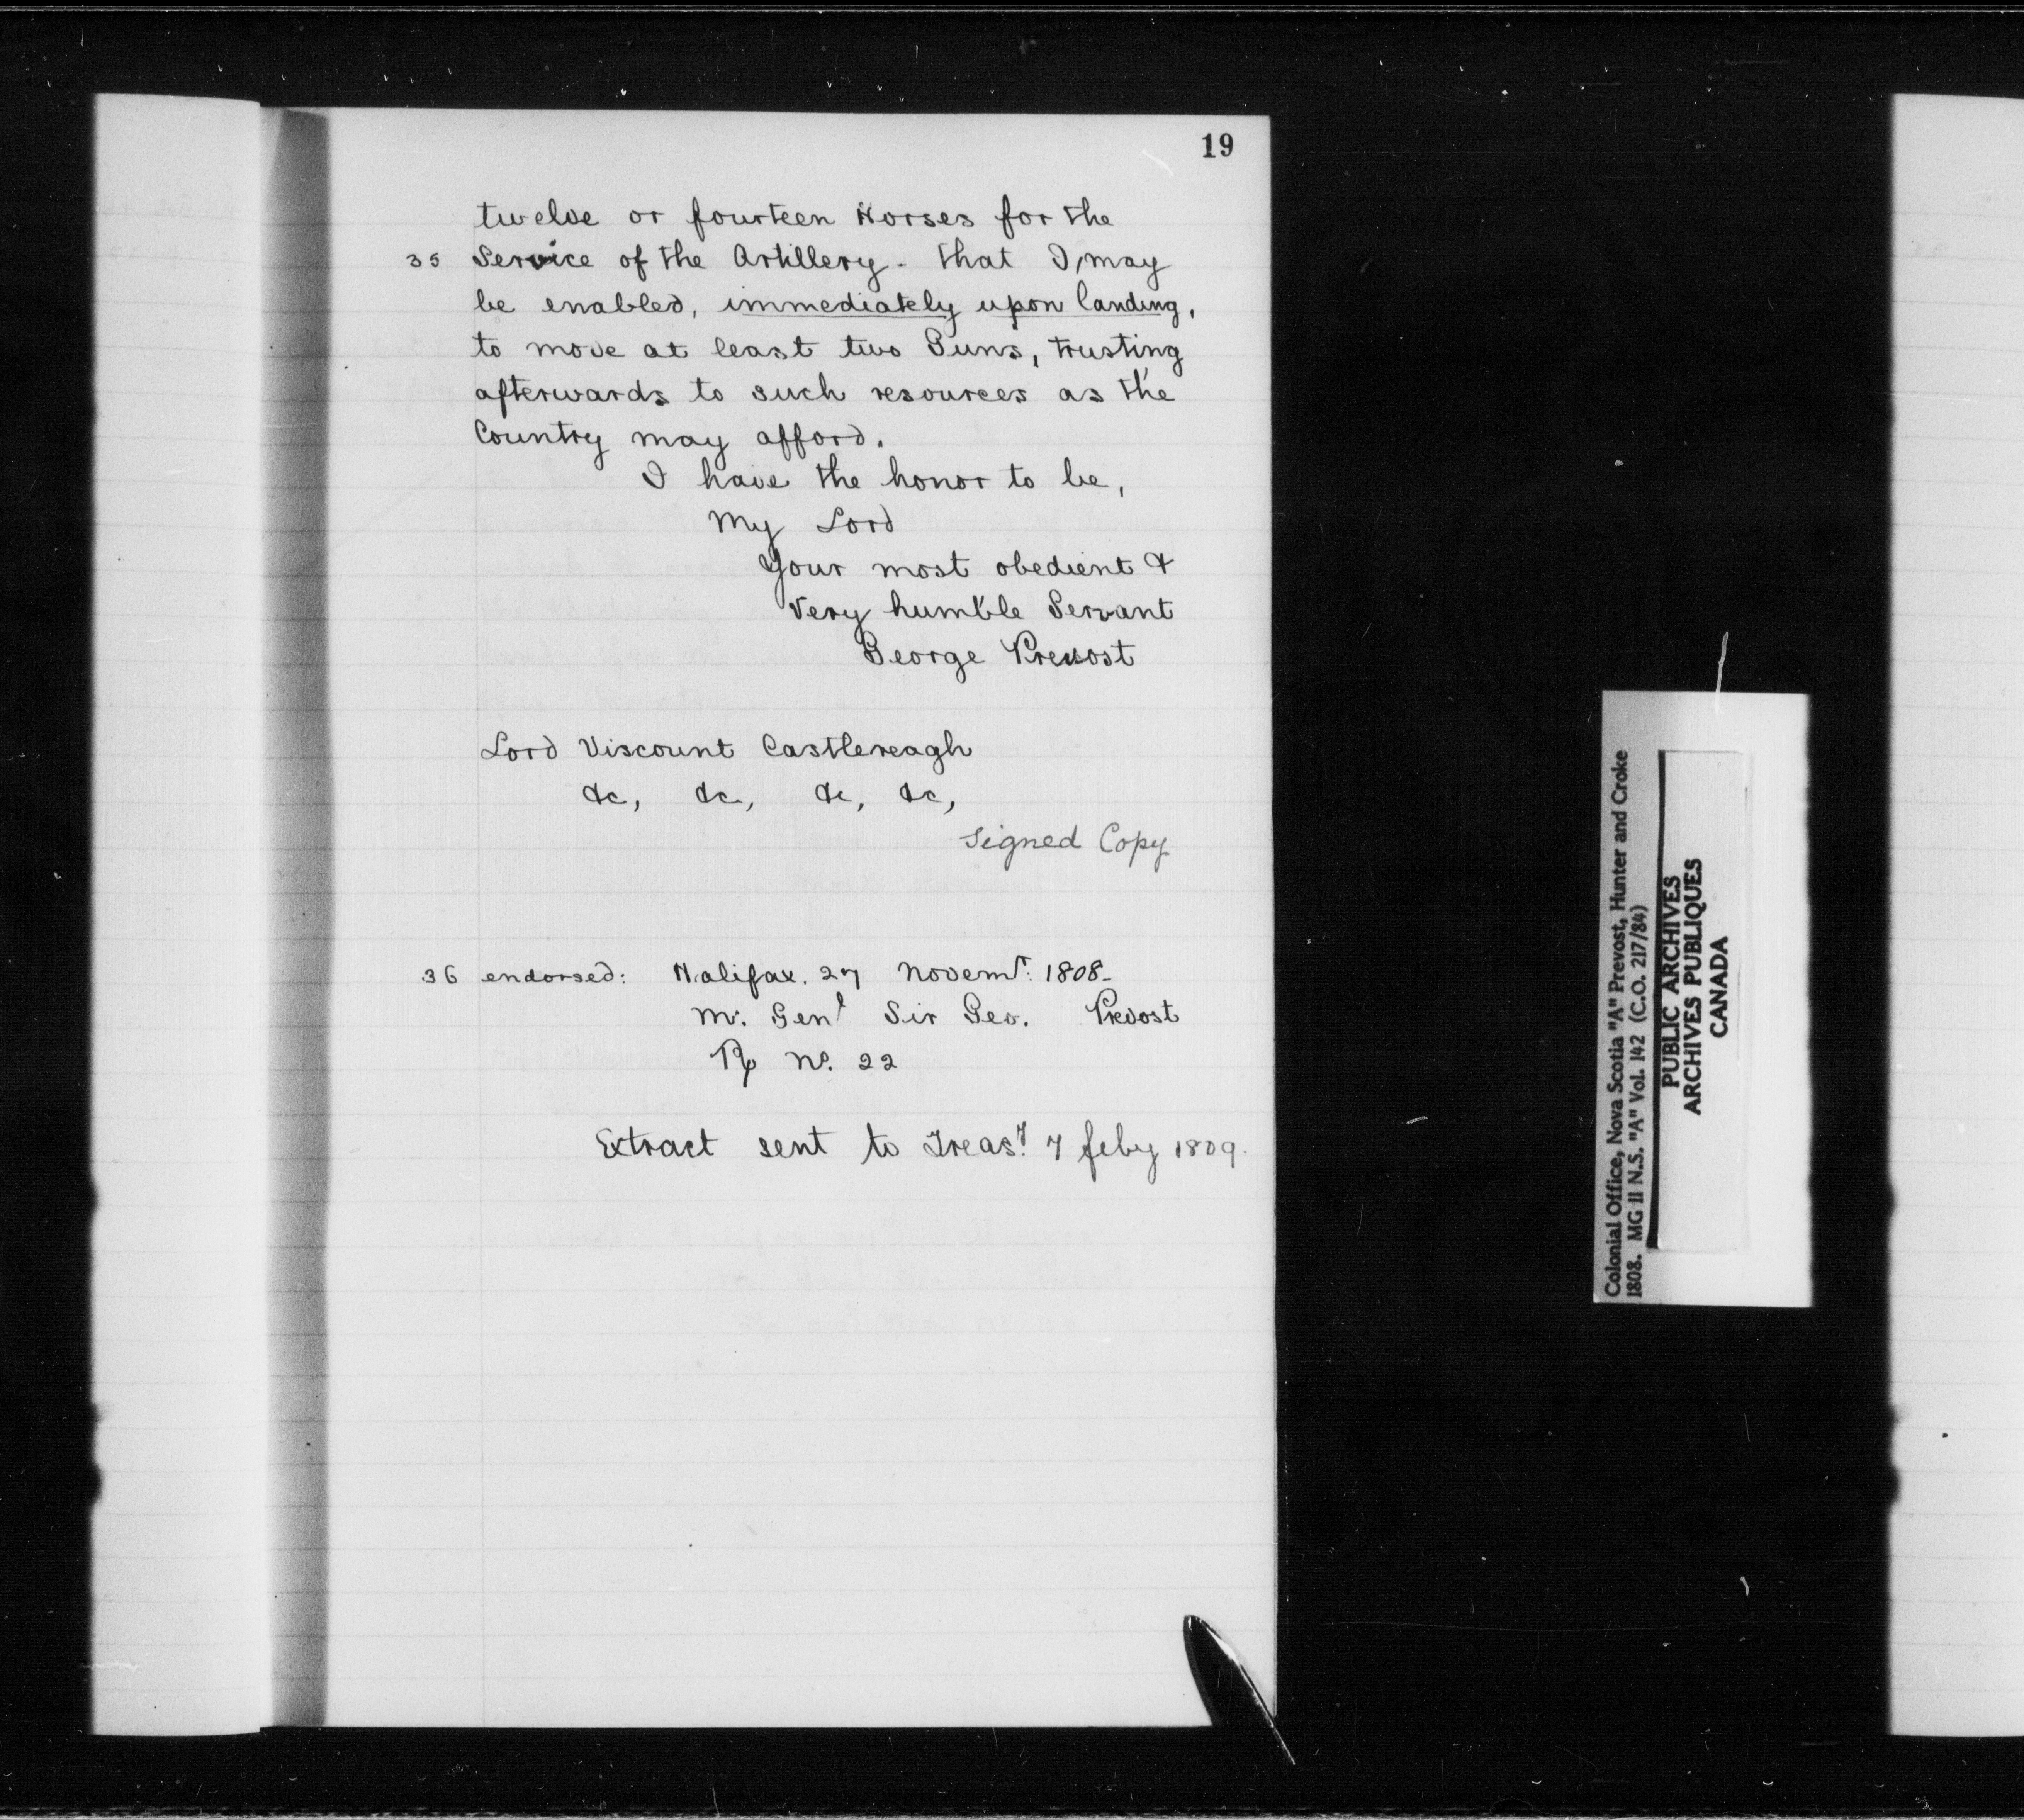 19
twelve or fourteen Horses for the
35 Service of the Artillery - that I, may
be enabled, immediately upon landing,
to move at least two Guns, trusting
afterwards to such resources as the
Country may afford.
I have the honor to be,
My Lord
Your most obedient &
Very humble Servant
George Prevost
Lord Viscount Castlereagh
&c, &c, &c, &c,
Signed Copy
36 endorsed: Halifax. 27 Novemr: 1808-
M. Genl Sir Geo. Prevost
No. 22
Extract sent to Treasy 7 feby 1809.
Colonial Office, Nova Scotia "A" Prevost, Hunter and Croke
1808. MG 11 N.S. "A" Vol. 142 (C.O. 217/84)
PUBLIC ARCHIVES
ARCHIVES PUBLIQUES
CANADA